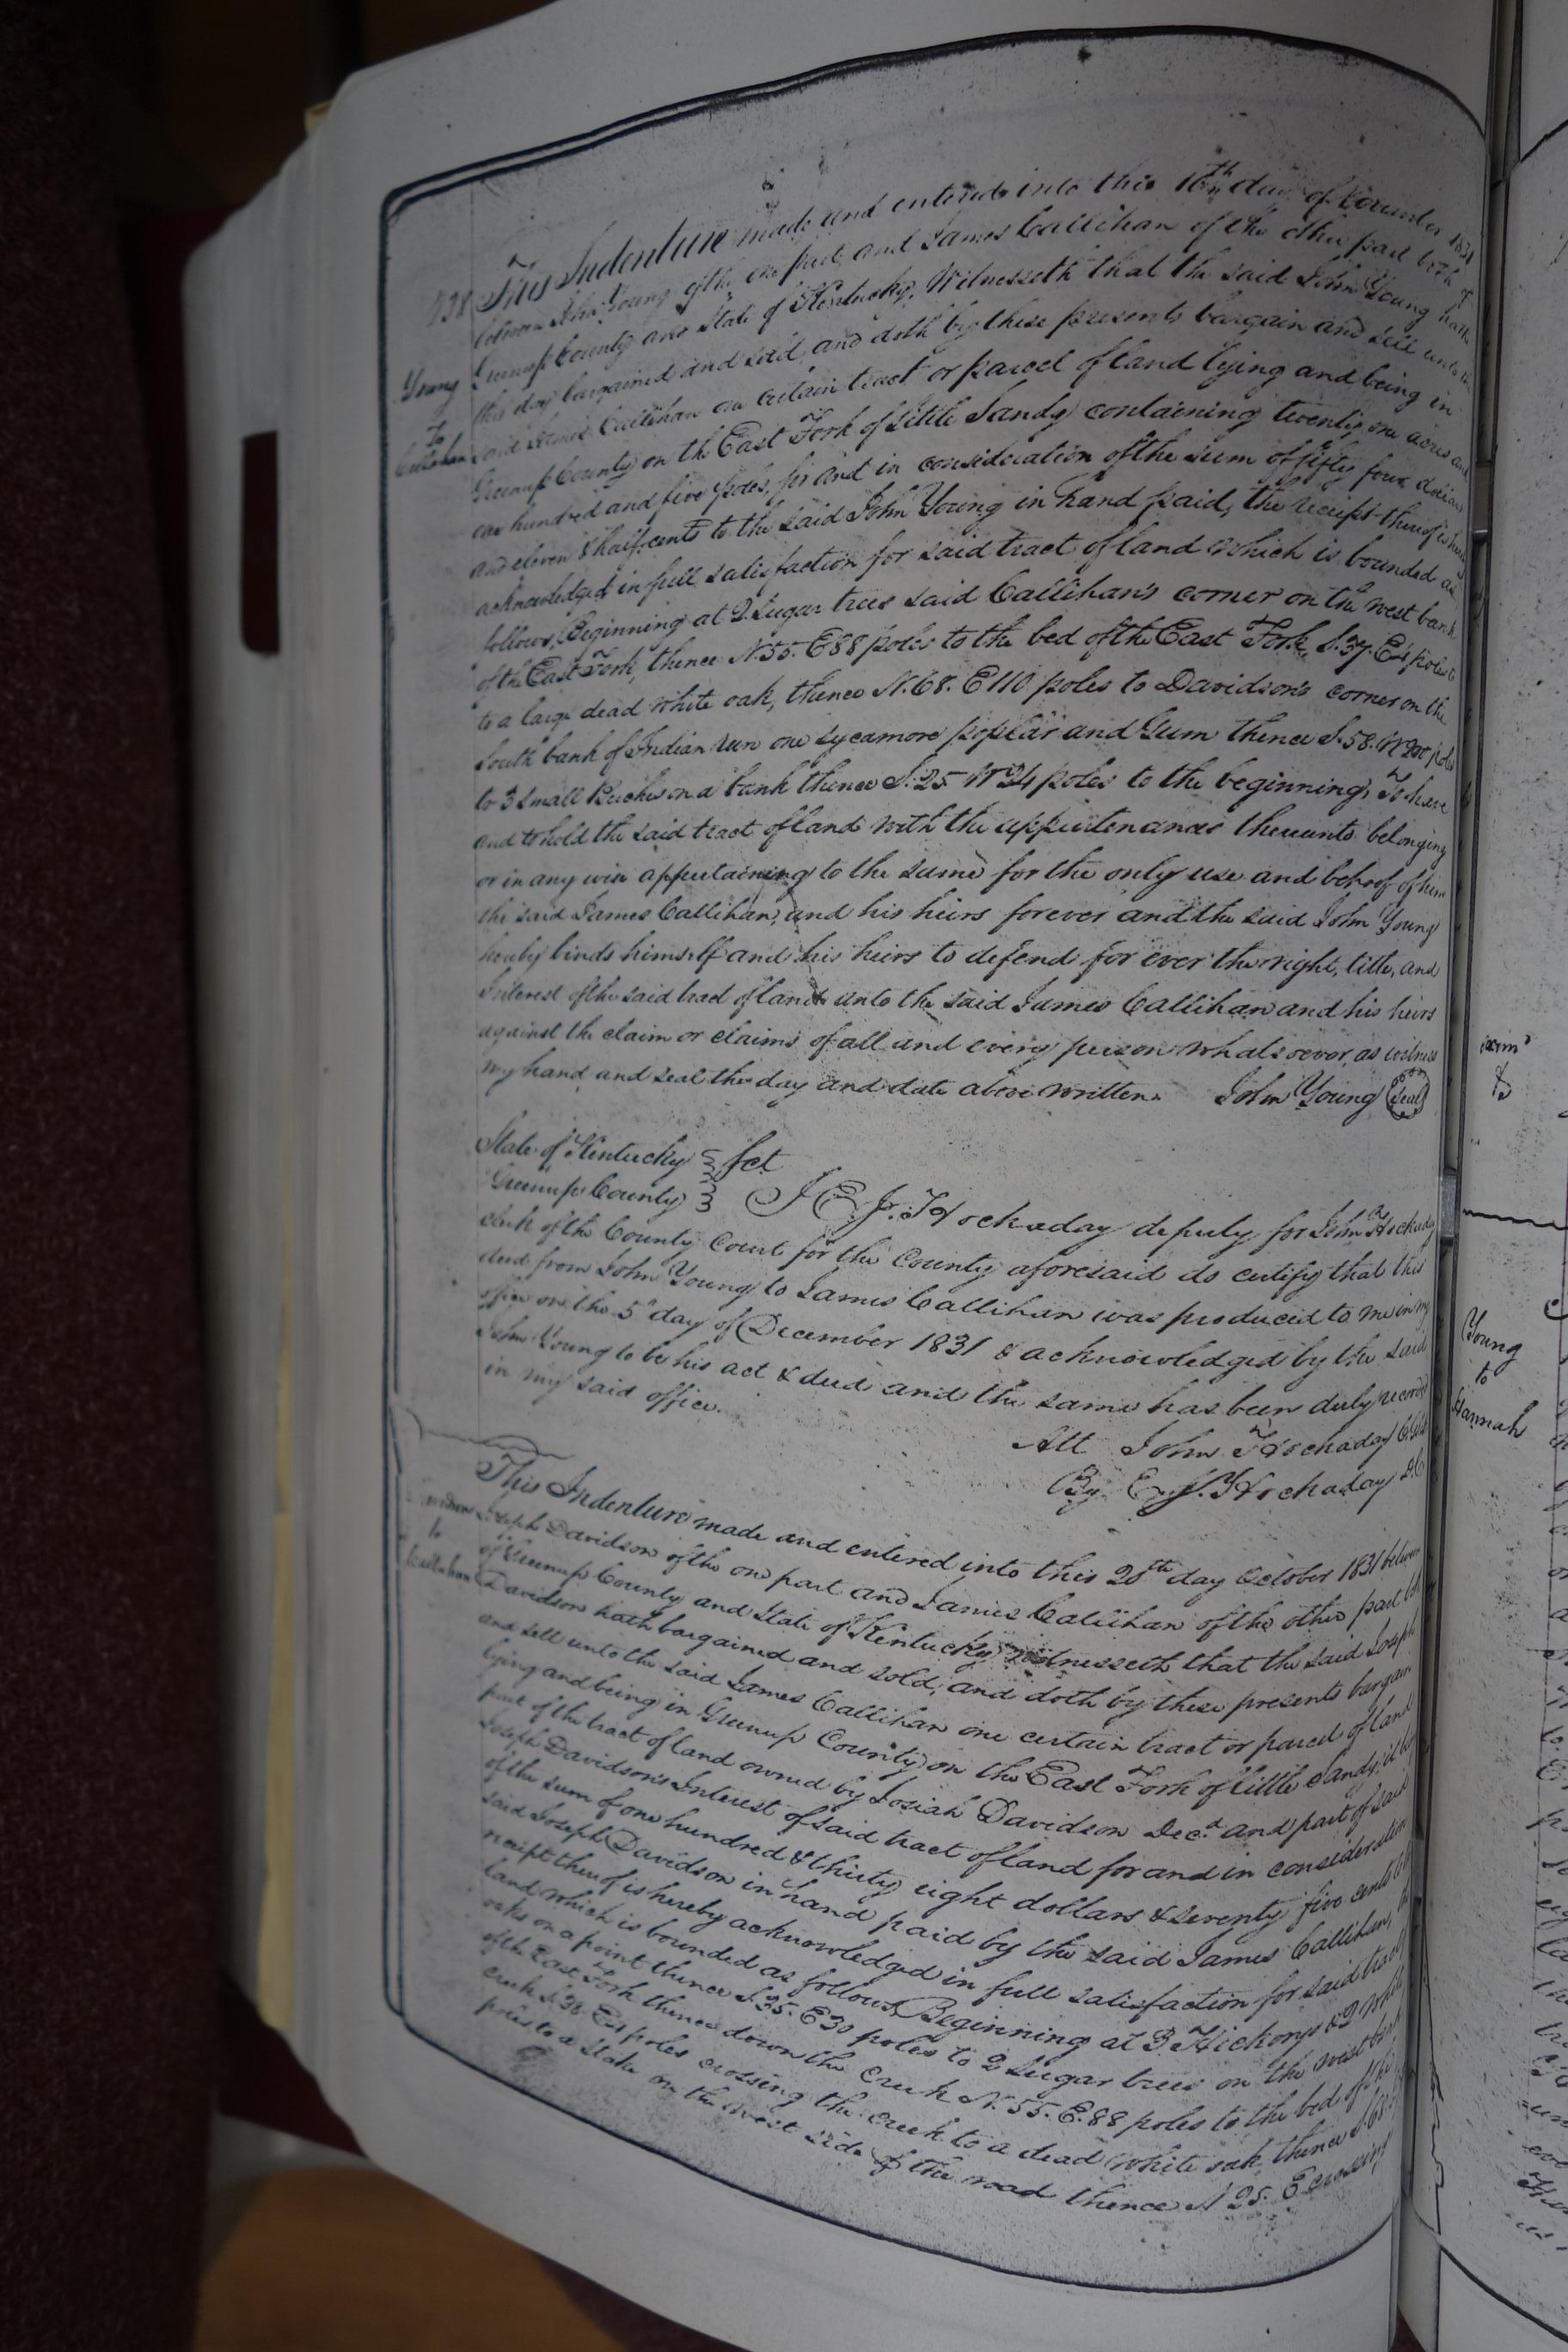 438 This Indenture made and entered into this 16th day of November 1831
between John Young of the one part, and James Callihan of the other part both of
Young Greenup County and State of Kentucky, Witnesseth that the said John Young hath
this day bargained and sold, and doth by these presents bargain and sell unto the
To
Callahan said James Callihan one certain tract or parcel of land lying and being in
Greenup County on the East Fork of Little Sandy containing twenty one acres and
one hundred and five poles, for and in consideration of the sum of fifty four dollars
and eleven & half cents to the said John Young in hand paid, the receipt thereof is hereby
acknowledged in full satisfaction for said tract of land which is bounded as
follows, Beginning at 2 Sugar trees said Callihan's corner on the west bank
of the East Fork, thence N.55. E 88 poles to the bed of the East Fork, S.37. E 4 poles to
to a large dead white oak, thence N.68. E 110 poles to Davidson's corner on the
South bank of Indian run one sycamore poplar and Gum thence S.58. W 200 poles
to 3 small Buches on a bank thence S.25 W 24 poles to the beginning, To have
and to hold the said tract of land with the appurtenances thereunto belonging
or in any wise appertaining to the same for the only use and behoof of him
the said James Callihan, and his heirs forever and the said John Young
hereby binds himself and his heirs to defend for ever the right, title, and
Interest of the said tract of land unto the said James Callihan and his heirs
against the claim or claims of all and every person whatsoever, as witness
my hand and seal the day and date above written. John Young Seal
State of Kentucky Sct
Greenup County I E. J. Hockaday deputy for John Hockaday
clerk of the County Court for the County aforesaid do certify that this
deed from John Young to James Callihan was produced to me in my
office on the 5" day of December 1831 & acknowledged by the said
John Young to be his act & deed and the same has been duly recorded
in my said office.
Att John Hockaday
By E. J. Hockaday D.C
This Indenture made and entered into this 28th day October 1831 between
Joseph Davidson of the one part and James Callihan of the other part both
to
of Greenup County and State of Kentucky witnesseth that the said Joseph
Callahan Davidson hath bargained and sold, and doth by these presents bargain
and sell unto the said James Callihan one certain tract or parcel of land
lying and being in Greenup County on the East Fork of little Sandy, it being
part of the tract of land owned by Josiah Davidson Decd and part of said
Joseph Davidson's Interest of said tract of land for and in consideration
of the sum of one hundred & thirty eight dollars & seventy five cents to the
said Joseph Davidson in hand paid by the said James Callihan, the
receipt thereof is hereby acknowledged in full satisfaction for said tract
land which is bounded as follows, Beginning at 3 Hickorys & 2 White
oaks on a point thence S.35. E 30 poles to 2 Sugar trees on the west bank
of the East Fork thence down the creek N.55. E.88 poles to the bed of the
creek S.38. E 4 poles crossing the creek to a dead white oak, thence
poles to a stake on the west side of the road thence N 25. E crossing
Young
to
Hannah